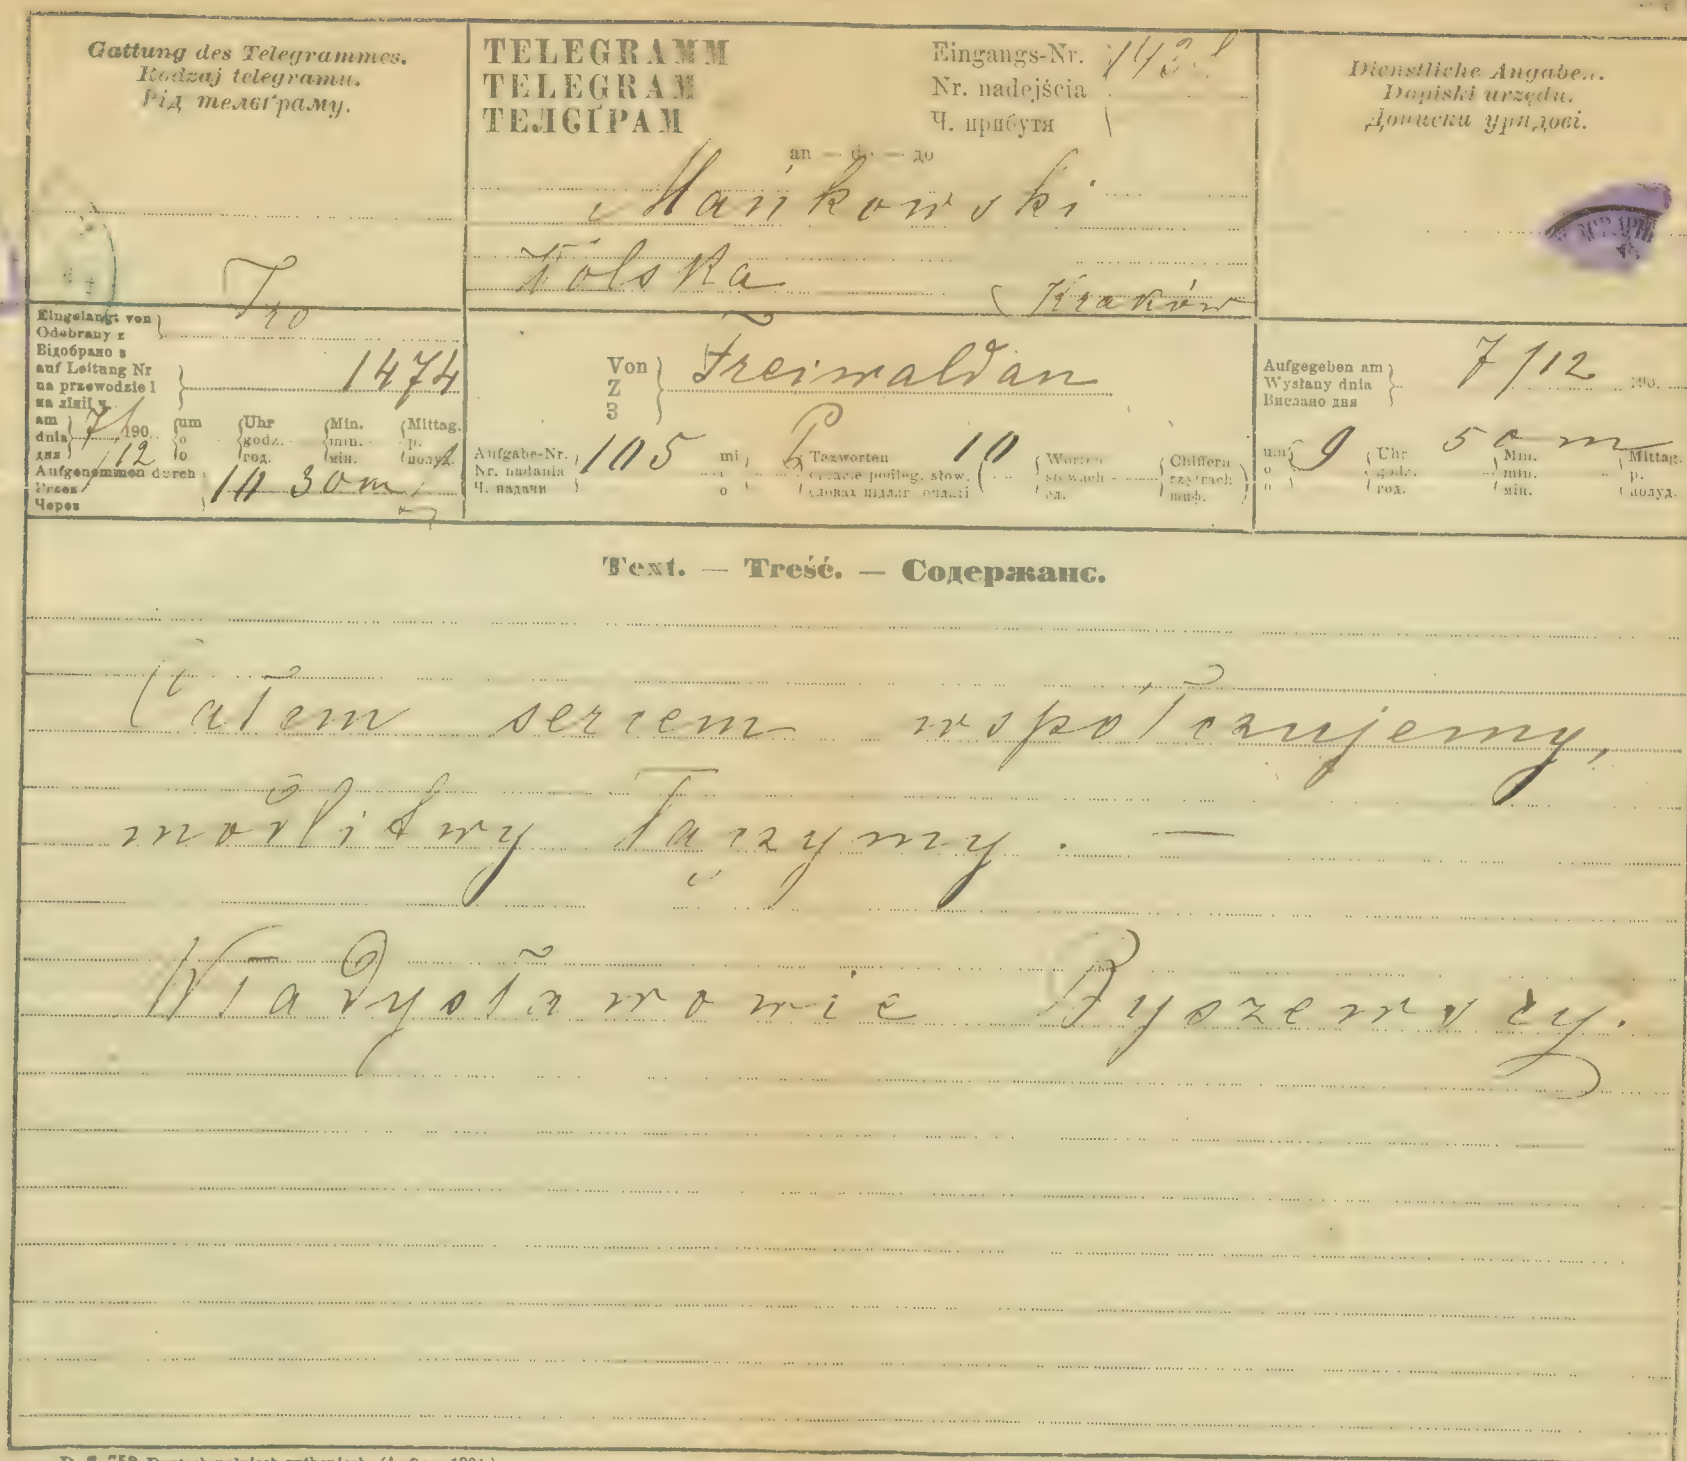 Gattung des Telegrammes.
Rodzaj telegramu.
Рід телєґраму.
TELEGRAMM
TELEGRAM
ТЕЛЄҐРАМ
Eingangs-Nr.
Nr. nadejścia
Ч. прибутя
Dienstliche Angaben.
Dopiski urzędu.
Дописки урядові.
an — do — до
Mańkowski
Wolska
Kraków
Eingelangt von
Odebrany z
Відобрано з
Tro
auf Leitung Nr
na przewodzie l
на лінії ч.
1474
am
dnia
дня
7/12 190
um
o
o
Uhr
godz.
год.
Min.
min.
мін.
Mittag.
p.
полуд.
Aufgenommen durch
Przez
Через
10 30 m
Von
Z
З
Freiwaldau
Aufgabe-Nr.
Nr. nadania
Ч. надачи
105
mit
o
Taxworten
10
Worten
słowach
Chiffern
Aufgegeben am
Wysłany dnia
Вислано дня
7/12 190
um
o
o
9
Uhr
godz.
год.
50 m
Min.
min.
мін.
Mittag.
p.
полуд.
Text. — Treść. — Содержанє.
Całem sercem współczujemy,
modlitwy łączymy. —
Władysławowie Ryszewscy.